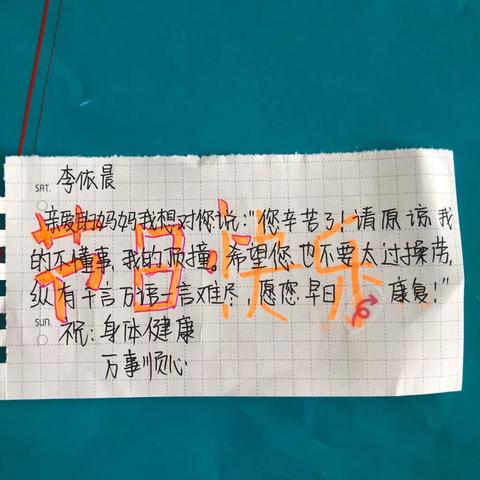 SAT. 李依晨
亲爱的妈妈我想对您说:"您辛苦了!请原谅我
的不懂事,我的顶撞。希望您也不要太过操劳,
纵有千言万语一言难尽,愿您早日 康复!"
SUN. 祝:身体健康
万事顺心
节日快乐